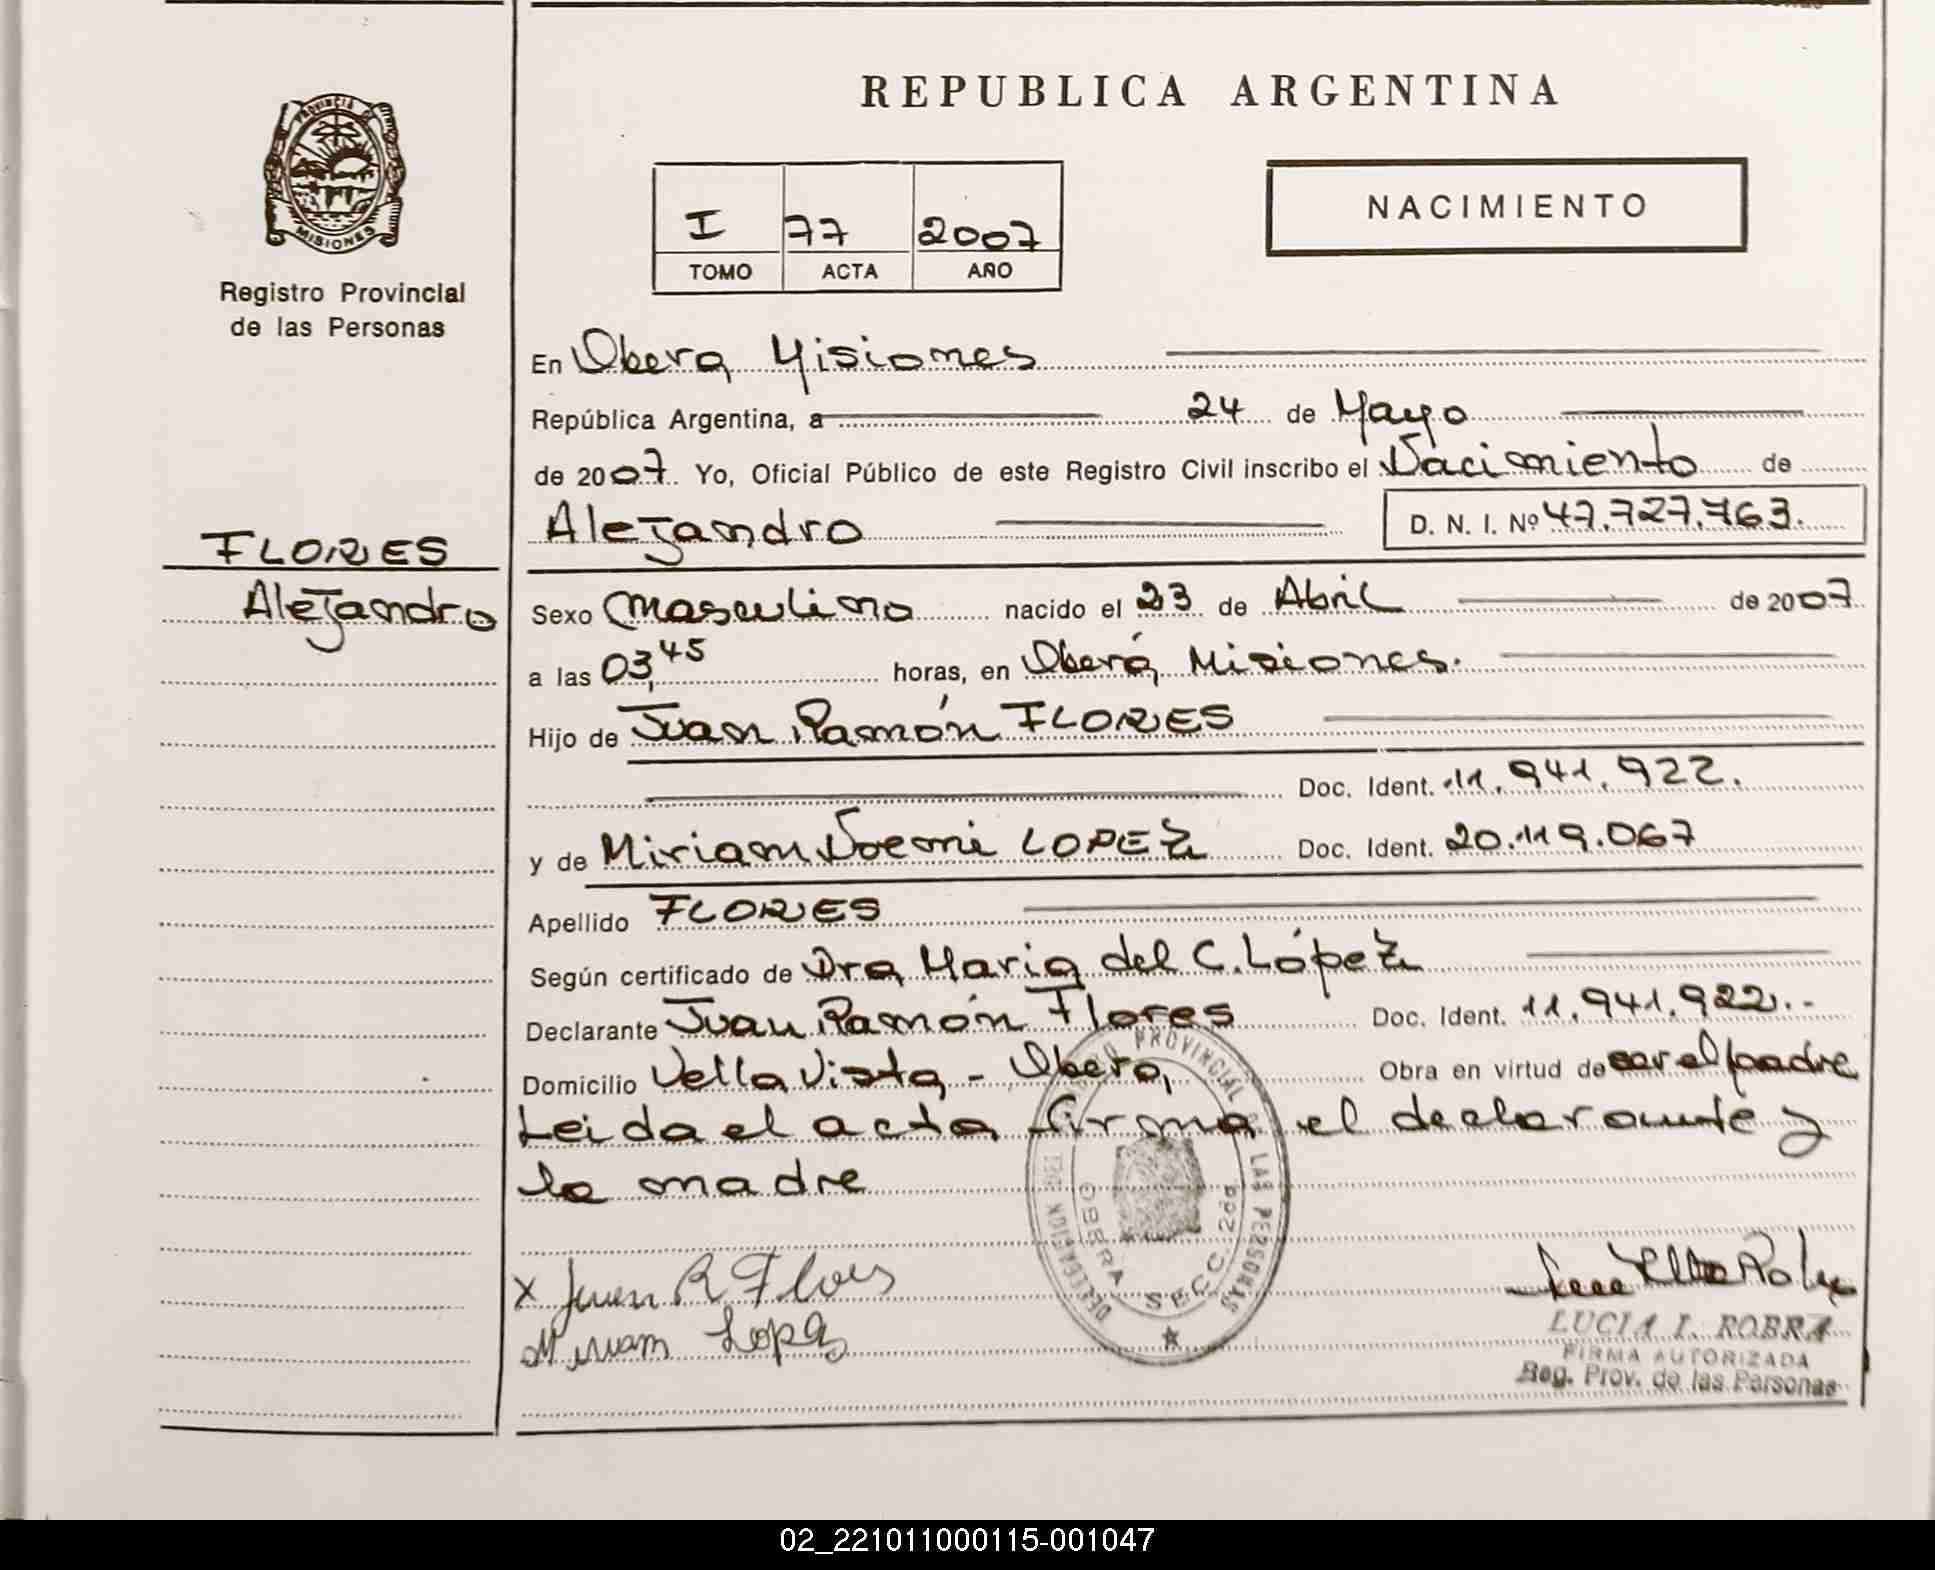 REPUBLICA ARGENTINA
PROVINCIA DE
MISIONES
Registro Provincial
de las Personas
I 77 2007
TOMO ACTA AÑO
NACIMIENTO
En Obera, Misiones
República Argentina, a 24 de Mayo
de 2007. Yo, Oficial Público de este Registro Civil inscribo el Nacimiento de
Alejandro D. N. I. Nº 47.727.763.
FLORES
Alejandro
Sexo Masculino nacido el 23 de Abril de 2007
a las 03,45 horas, en Oberá, Misiones.
Hijo de Juan Ramón FLORES
Doc. Ident. 11.941.922.
y de Miriam Noemi LOPEZ Doc. Ident. 20.119.067
Apellido FLORES
Según certificado de Dra, Maria del C. López
Declarante Juan Ramón Flores Doc. Ident. 11.941.922.-
Domicilio Vella Vista, - Obera, Obra en virtud de ser el padre
Leida el acta firma el declarante y
la madre
DELEGACION DEL REGISTRO PROVINCIAL DE LAS PERSONAS
OBERA SECC. 2da
x Juan R Flores
Miriam Lopez
LUCIA I. ROBRA
FIRMA AUTORIZADA
Reg. Prov. de las Personas
02_221011000115-001047